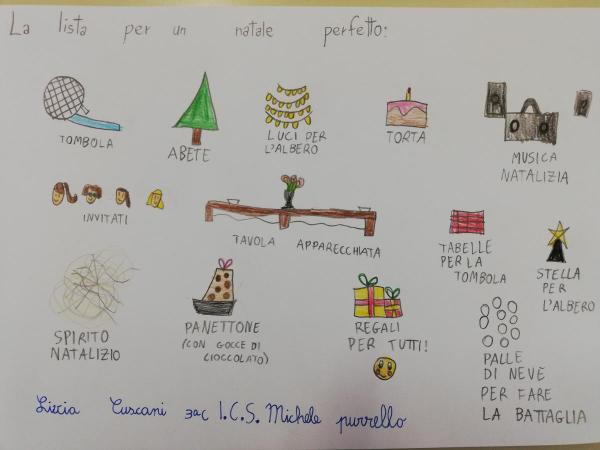 La lista per un natale perfetto:
TOMBOLA
ABETE
LUCI PER
L'ALBERO
TORTA
MUSICA
NATALIZIA
INVITATI
TAVOLA APPARECCHIATA
TABELLE
PER LA
TOMBOLA
STELLA
PER
L'ALBERO
SPIRITO
NATALIZIO
PANETTONE
(CON GOCCE DI
CIOCCOLATO)
REGALI
PER TUTTI!
PALLE
DI NEVE
PER FARE
LA BATTAGLIA
Cuscani 3ªC I.C.S. Michele purrello